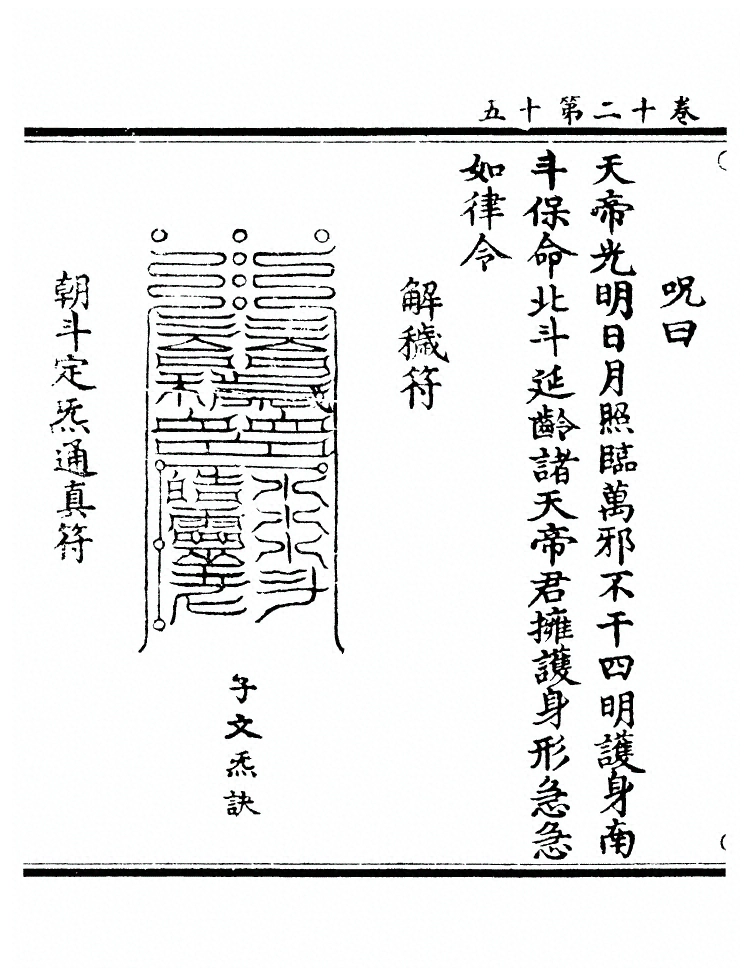 卷十二第十五
呪曰
天帝光明日月照臨萬邪不干四明護身南
斗保命北斗延齡諸天帝君擁護身形急急
如律令
解穢符
子文炁訣
朝斗定炁通真符